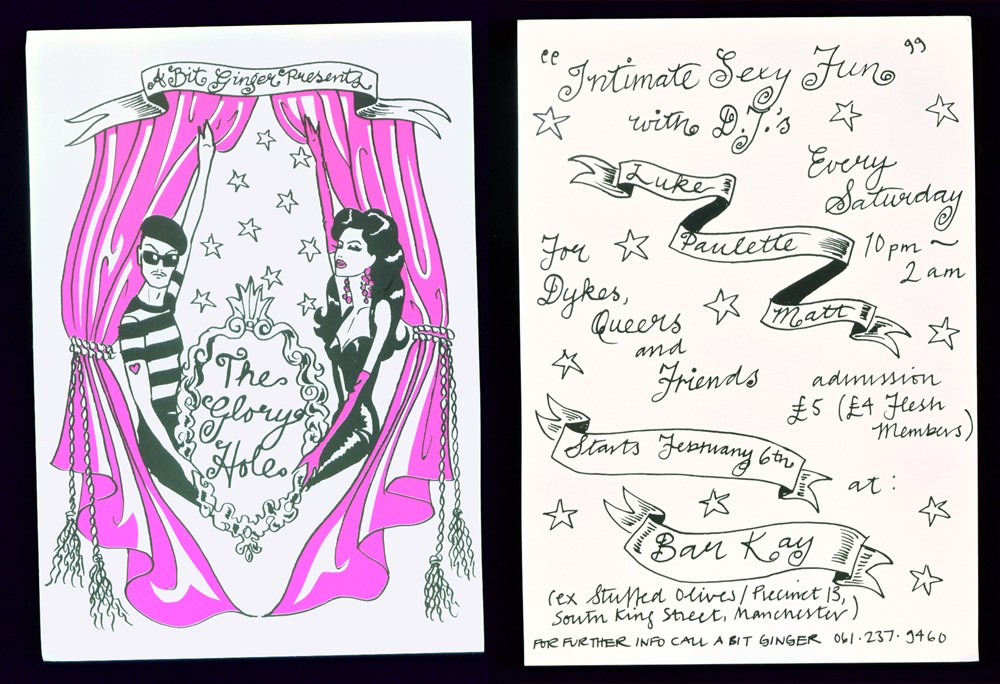 A Bit Ginger Presents
The
Glory
Hole
"Intimate Sexy Fun"
with D.J.'s
Luke
Every
Saturday
Paulette
10pm ~
2 am
For
Dykes,
Queers
and
Friends
Matt
admission
£5 (£4 Flesh
Members)
Starts February 6th
at:
Bar Kay
(ex Stuffed Olives/Precinct 13,
South King Street, Manchester)
FOR FURTHER INFO CALL A BIT GINGER 061·237·9460